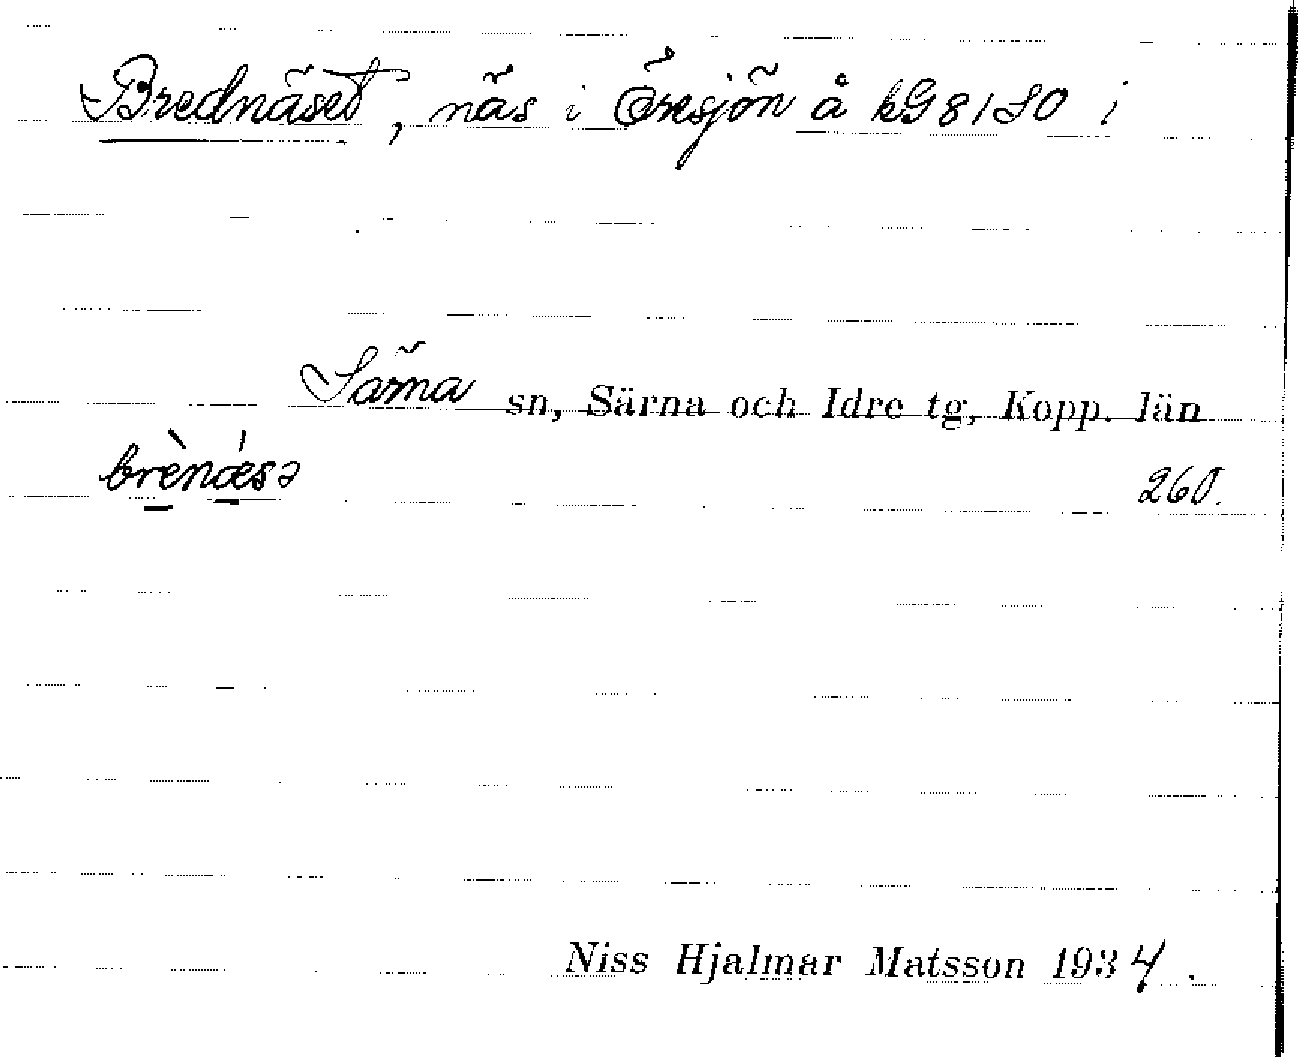 Brednäset, näs i Öresjön å kG81SO i
Särna sn, Särna och Idre tg, Kopp. län
brènǽsə
260.
Niss Hjalmar Matsson 1934.